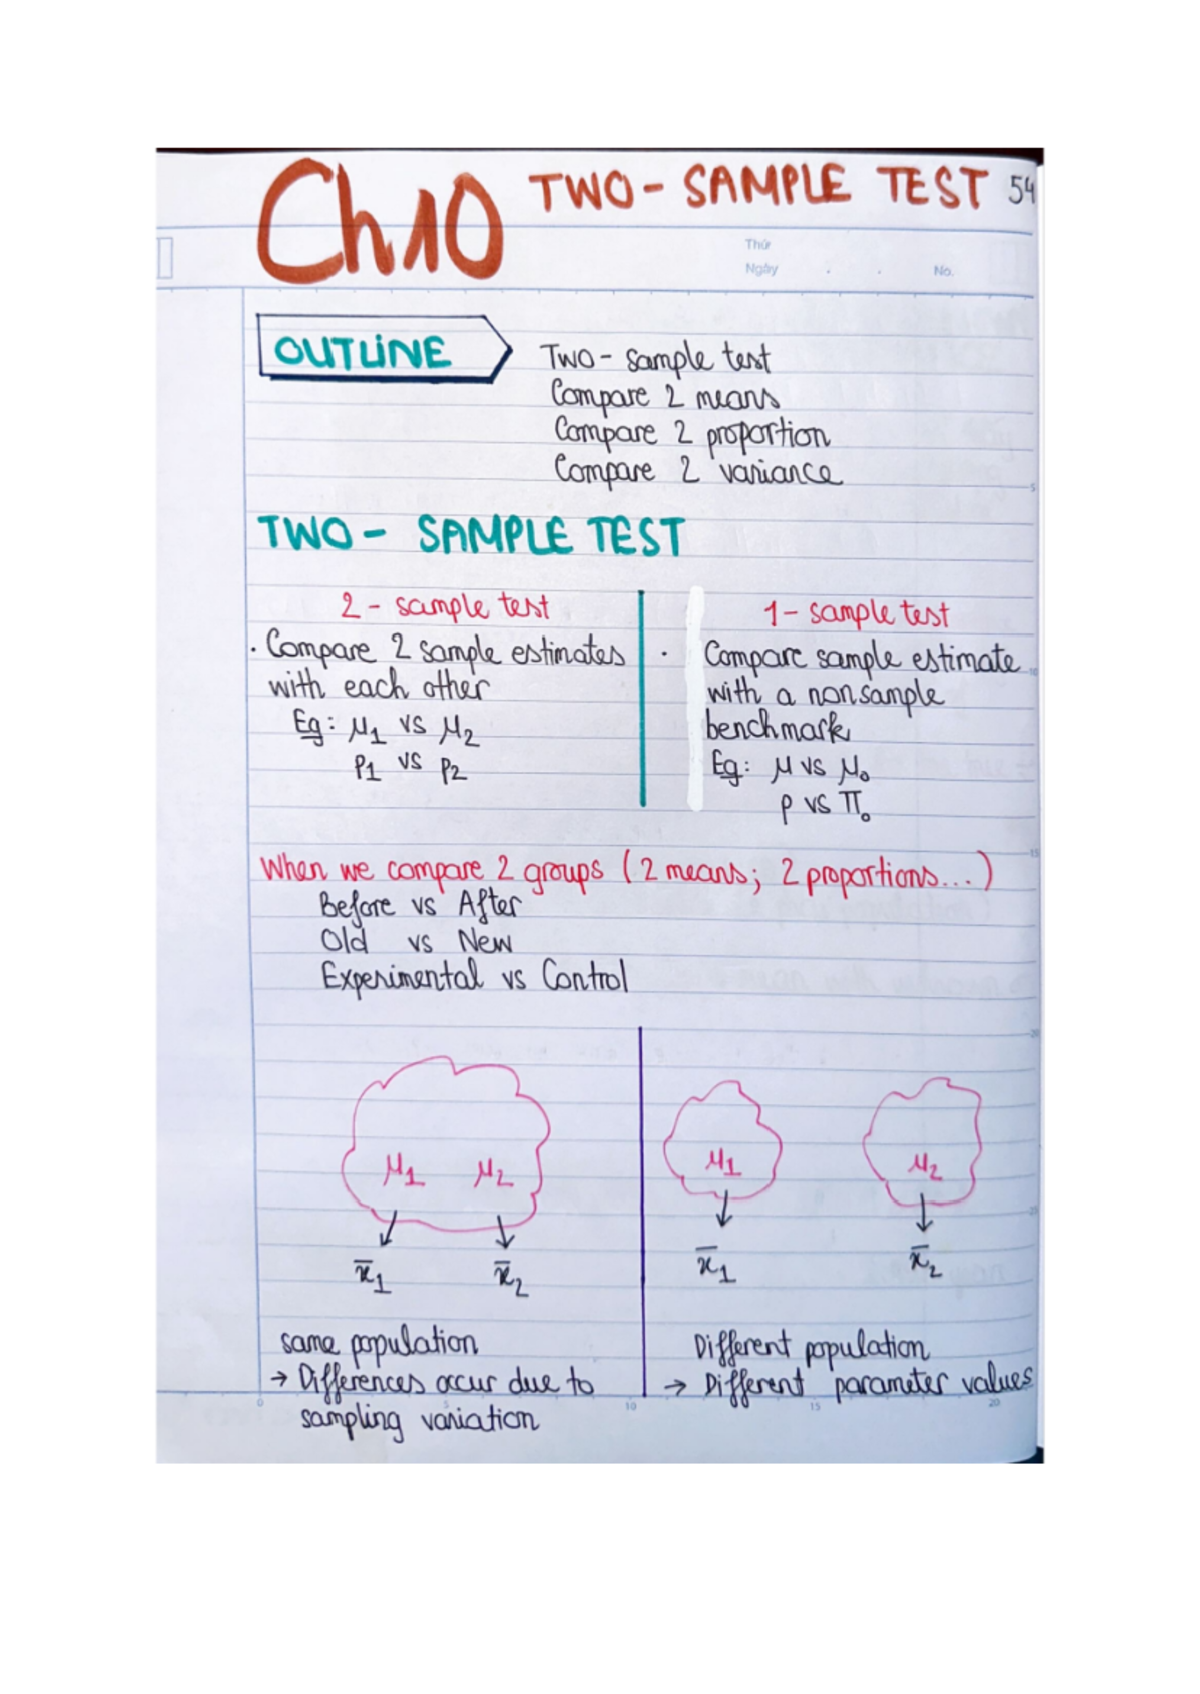 Ch10 TWO - SAMPLE TEST 54
Thứ
Ngày . . No.
OUTLINE
Two - sample test
Compare 2 means
Compare 2 proportion
Compare 2 variance
5
TWO - SAMPLE TEST
2 - sample test
· Compare 2 sample estimates
with each other
Eg: μ1 vs μ2
p1 vs p2
1 - sample test
· Compare sample estimate
with a nonsample
benchmark
Eg: μ vs μ₀
p vs π₀
10
When we compare 2 groups (2 means; 2 proportions...)
15
Before vs After
Old vs New
Experimental vs Control
20
μ1 μ2
x̄1 x̄2
same population
→ Differences occur due to
sampling variation
μ1 μ2
25
x̄1 x̄2
Different population
→ Different parameter values
0 5 10 15 20